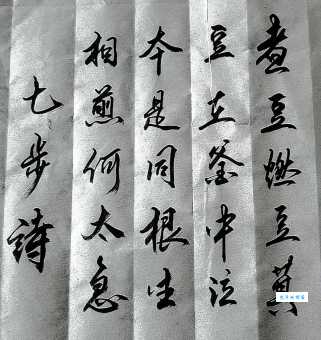 煮豆燃豆萁
豆在釜中泣
本是同根生
相煎何太急
七步詩